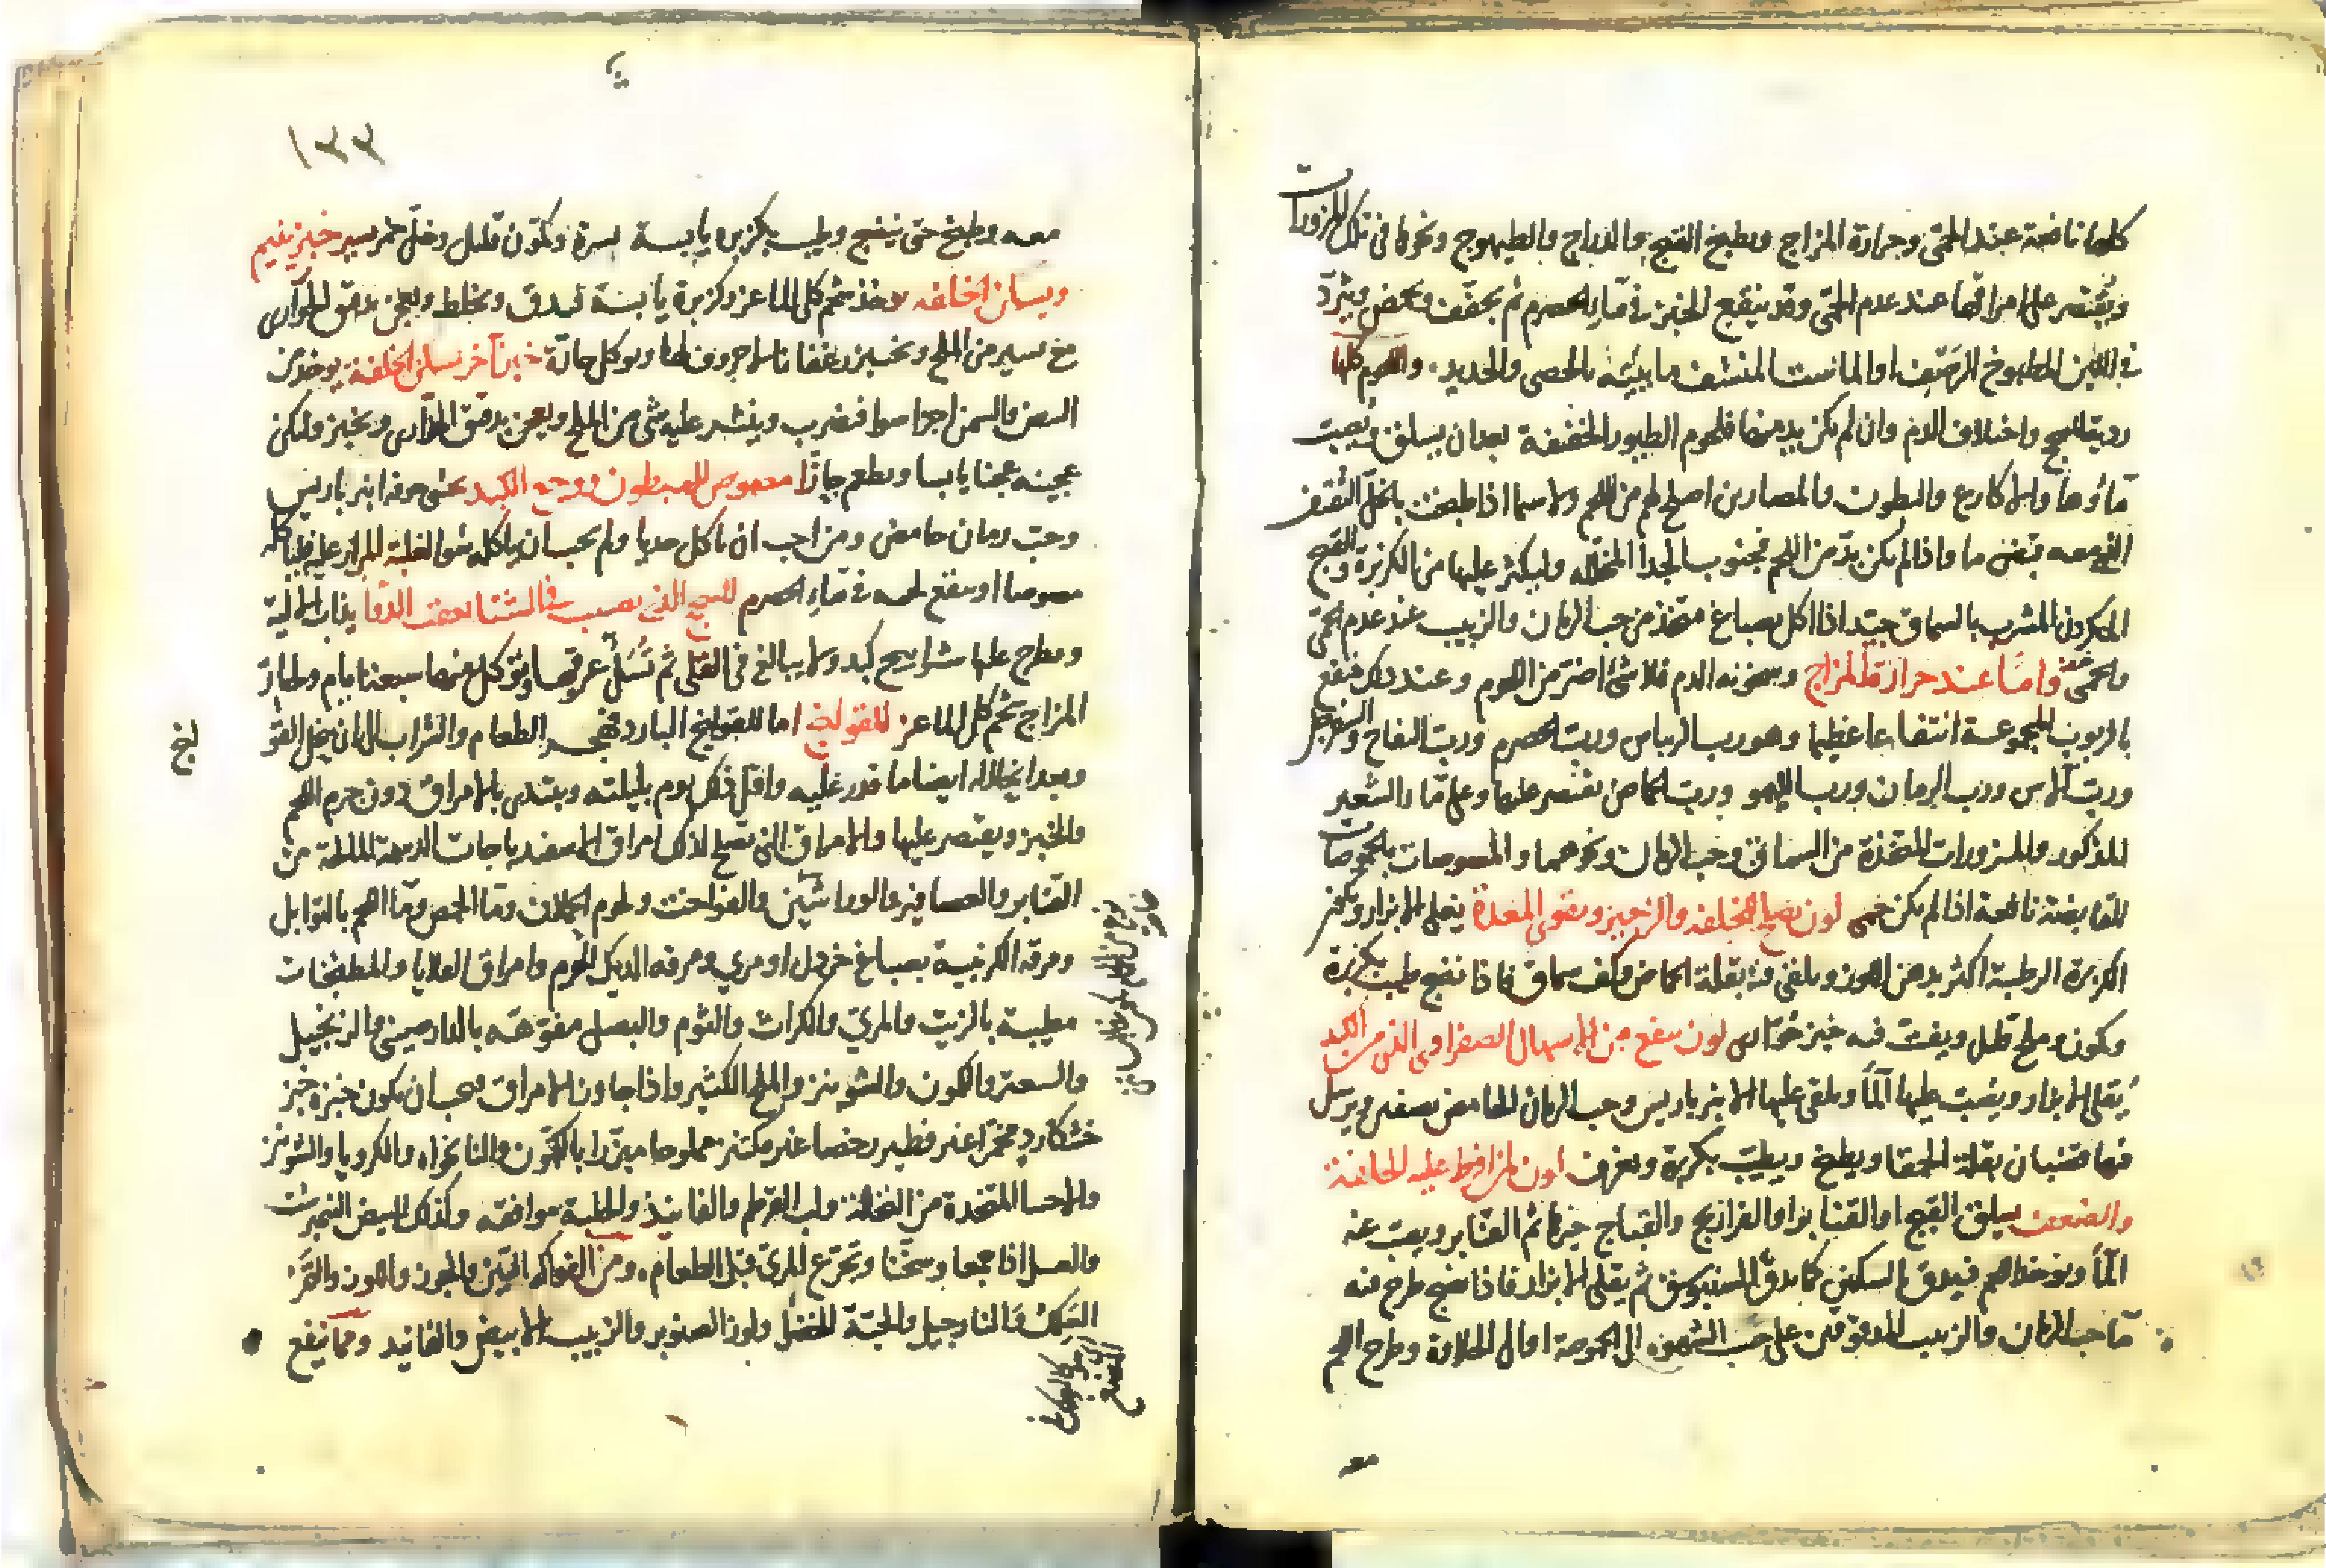 كلها نافعة عند الحمى وحرارة المزاج ويطبخ القبج والدراج والطيهوج ونحوها في تلك المزورات
ويقتصر على امراقها عند عدم الحمى وقد ينقع الخبز في ماء الحصرم ثم يجفف ويثرد
في اللبن المطبوخ او الماست المنشف مائيته بالحصى والحديد واللحوم كلها
ردية للسحج واختلاف الدم وان لم يكن بد منها فلحوم الطيور الخفيفة بعد ان يسلق ويصب
ماؤها والاكارع والبطون والمصارين اصلح لهم من اللحم ولا سيما اذا طبخت بالخل الثقيف
الذي معه قبض ما واذا لم يكن بد من اللحم فجنوب الجدا المخللة وليكثر عليها من الكزبرة والقبج
المشرب بالسماق جيد اذا اكل بصباغ متخذ من حب الرمان والزبيب عند عدم الحمى
واما عند حرارة المزاج وسخونة الدم فلا شئ اضر من اللحوم وعند ذلك ينتفع
بالربوب المجموعة انتفاعا عظيما وهو رب الريباس ورب الحصرم ورب التفاح والسفرجل
ورب الاس ورب الرمان ورب الليمو ورب الحماض يقتصر عليها وعلى ماء الشعير
المذكور والمزورات المتخذة من السماق وحب الرمان ونحوهما والمصوصات بالحموضات
القابضة نافعة اذا لم يكن حمى لون يصلح للخلفة والزحير ويقوي المعدة يغلى الابزار ويكثر
الكزبرة الرطبة اكثر بدهن اللوز ويلقى فيه بقلة الحماض وكف سماق فاذا نضج طيب بكزبرة
وكمون وملح قليل ويفت فيه خبز حوارى لون ينفع من الاسهال الصفراوي الذي من الكبد
يقلى الابزار ويصب عليها الماء ويلقى عليها الانبرباريس وحب الرمان الحامض ويرسل
فيها قضبان بقلة الحمقا ويطبخ ويطيب بكزبرة ويغرف لون لمن افرط عليه الخلفة
والضعف يسلق القبج او القنابر او الفراريج والقباج خيرها ثم القنابر ويصب عنه
الماء ويوخذ اللحم فيدق بالسكين كما يدق للسنبوسق ثم يقلى الابزار فاذا نضج طرح فيه
ماء حب الرمان والزبيب المدقوقين على حسب الشهوة الى الحموضة او الى الحلاوة وطرح اللحم
معه
١٣٣
معه وطبخ حتى ينضج وطيب بكزبرة يابسة يسيرة وكمون قليل وخل خمر يسير خبز ينيم
ويسكن الخلفة يوخذ شحم كلى الماعز وكزبرة يابسة تدق ويخلط ويعجن بدقيق الحوارى
مع يسير من الملح ويخبز رغفانا ويوكل حارة خبز اخر يسكن الخلفة يوخذ من
السمن اجزا سوا فيضرب وينثر عليه شئ من الملح ويعجن بدقيق الحوارى ويخبز وليكن
عجينه عجينا يابسا ويطعم حارا مصوص للمبطون ووجع الكبد يحشى جوفه انبرباريس
وحب رمان حامض ومن احب ان ياكل جديا ولم يحب ان ياكله شوا لغلبة المرار عليه فلياكله
مصوصا او ينقع لحمه في ماء الحصرم للسحج الذي يصيب في الشتا يذاب الالية
ويطرح عليها شرايح كبد ولا يبالغ في القلي ثم تسل عروقها ويوكل منها سبعة ايام ولحار
المزاج شحم كلى الماعز للقولنج اما للقولنج البارد فهجر الطعام والشراب الى ان ينحل القو
لنج
وبعد انحلاله ايضا ما قدر عليه واقل في كل يوم بليلته ويبتدي بالامراق دون جرم اللحم
والخبز ويقتصر عليها والامراق التي تصلح لذلك امراق الاسفيدباجات الدسمة المملحة من
القنابر والعصافير والوراشين والفواخت ولحوم الحملان وماء الحمص وماء اللحم بالتوابل
ومرقة الكرنبية بصباغ خردل او مري ومرقة الديك الهرم وامراق القلايا والمطجنات
مطيبة بالزيت والمري والكراث والثوم والبصل مفوهة بالدارصيني والزنجبيل
والسعتر والكمون والشونيز والملح الكثير واذا جاوز الامراق يجب ان يكون خبزه خبز
خشكار مخمرا غير فطير رخصا غير مكتنز مملوحا مبزرا بالكمون والنانخواه والكرويا والشونيز
والاحسا المتخذة من النخالة ولب القرطم والفانيذ والحلبة موافقة وكذلك البيض النيمبرشت
والعسل اذا جمعا وسخنا وتجرع المري قبل الطعام ومن الفواكه التين والجوز واللوز والتمر
العلك والنارجيل والحبة الخضرا ولوز الصنوبر والزبيب الابيض والفانيد ومما ينفع